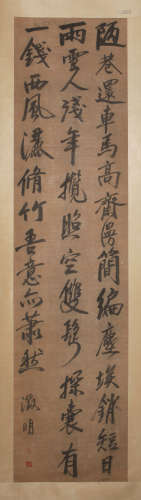 陋巷還車馬高齋漫簡編塵埃銷短日
雨雪入殘年攬照空雙鬢探囊有
一錢西風瀟脩竹吾意亦蕭然
徵明